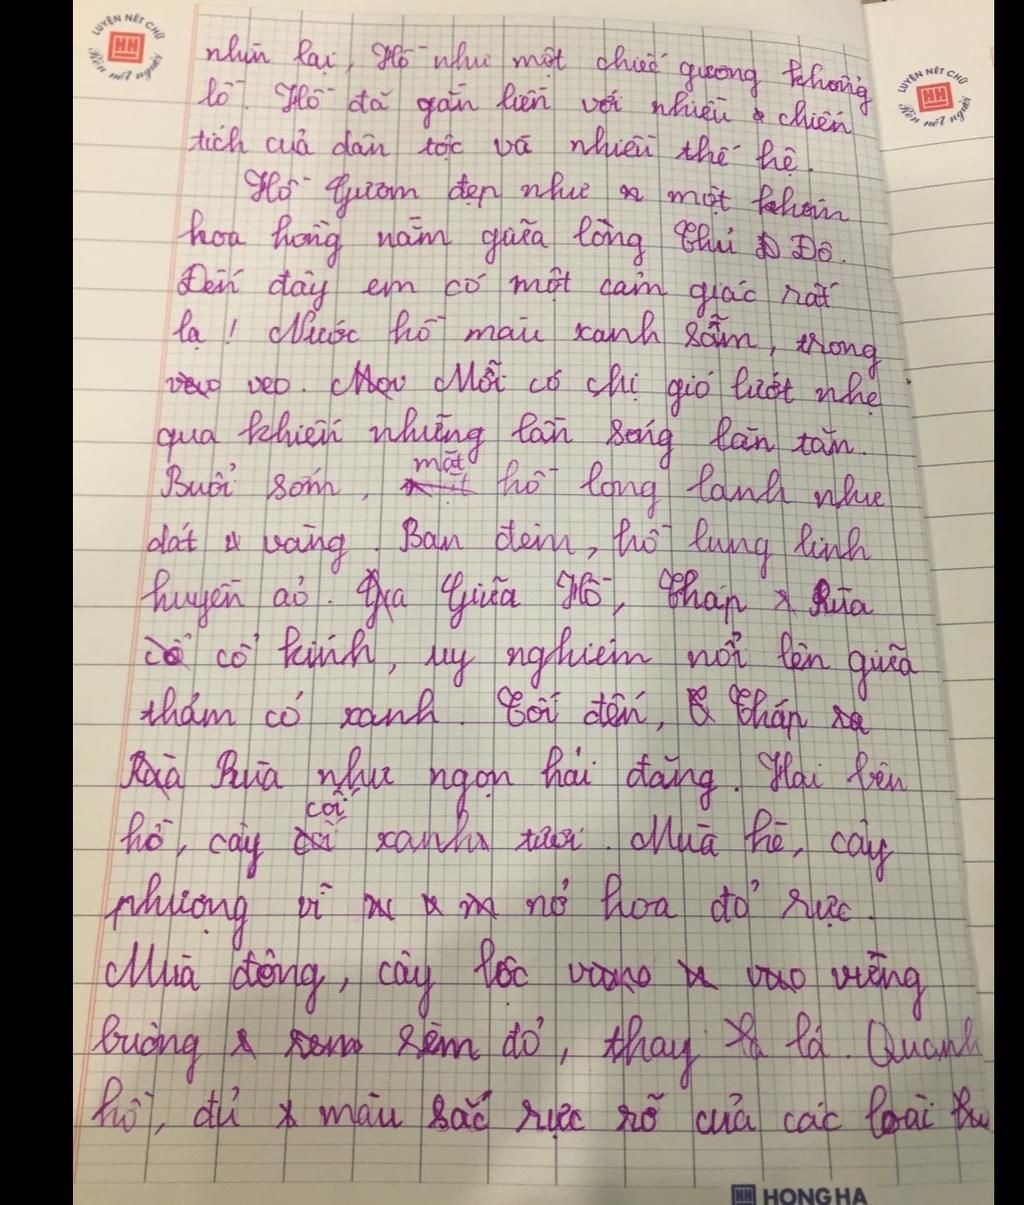 LUYỆN NÉT CHỮ
HH
Rèn nết người
LUYỆN NÉT CHỮ
HH
Rèn nết người
nhìn lại, Hồ như một chiếc gương khổng
lồ. Hồ đã gắn liền với nhiều chiến
tích của dân tộc và nhiều thế hệ.
Hồ Gươm đẹp như một khóm
hoa hồng nằm giữa lòng Thủ Đô.
Đến đây em có một cảm giác rất
lạ! Nước hồ màu xanh sẫm, trong
veo. Mỗi có chị gió lướt nhẹ
qua khiến những làn sóng lăn tăn.
Buổi sớm, mặt hồ long lanh như
dát vàng. Ban đêm, hồ lung linh
huyền ảo. Giữa Hồ, Tháp Rùa
cổ kính, uy nghiêm nổi lên giữa
thảm cỏ xanh. Tối đến, Tháp
Rùa như ngọn hải đăng. Hai bên
hồ, cây cối xanh tươi. Mùa hè, cây
phượng vĩ nở hoa đỏ rực.
Mùa đông, cây lộc vừng
buông rèm đỏ, thay lá. Quanh
hồ, đủ màu sắc rực rỡ của các loài
HH HONG HA